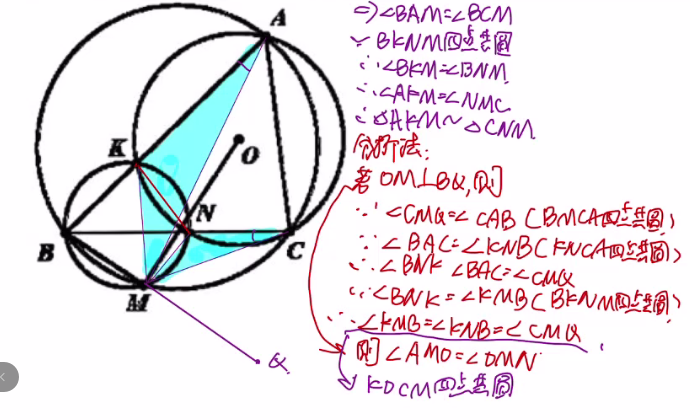 A
K
O
N
B
C
M
Q
K
=> ∠BAM=∠BCM
∵ BKNM四点共圆
∴ ∠BKM=∠BNM
∴ ∠AKM=∠NMC
∴ △AKM∽△CNM
分析法:
若OM⊥BQ,则
∵ ∠CMQ=∠CAB (BMCA四点共圆)
∵ ∠BAC=∠KNB(KNCA四点共圆)
∴ ∠BNK ∠BAC=∠CMQ
∵ ∠BNK=∠KMB(BKNM四点共圆)
∴ ∠KMB=∠KNB=∠CMQ
则∠AMO=∠OMN
KOCM四点共圆